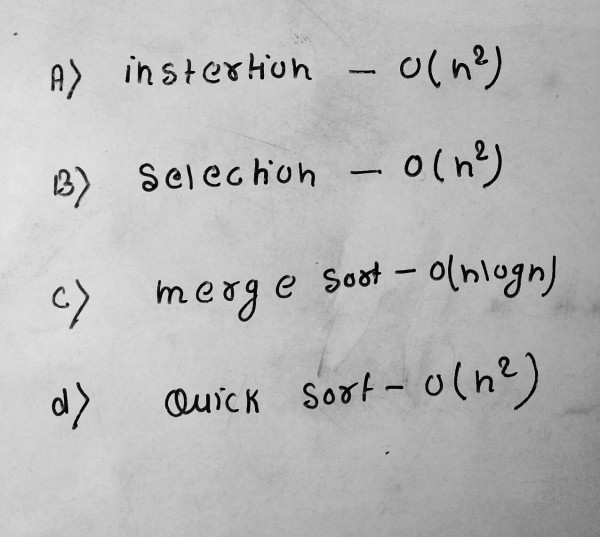 A) instertion - O(n²)
B) Selection - O(n²)
C) merge sort - O(nlogn)
d) Quick Sort - O(n²)